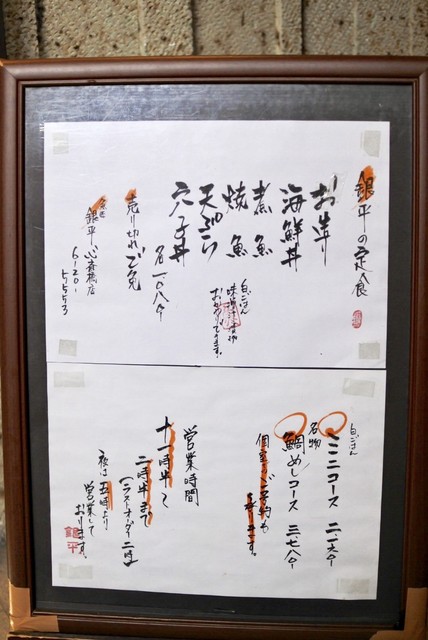 銀平の定食
お造り
海鮮丼
煮魚
焼魚
天ぷら
穴子丼
各一、〇八〇
白ごはん
おかわりできます。
売り切れご免
魚匠 銀平 心斎橋店
6120-1
5553
白ごはん
ミニコース 二、一六〇
名物
鯛めしコース 三、七八〇
個室のご予約も
営業時間
十一時半〜
二時半まで
(ラストオーダー二時)
夜は五時より
営業して
おります。
銀平